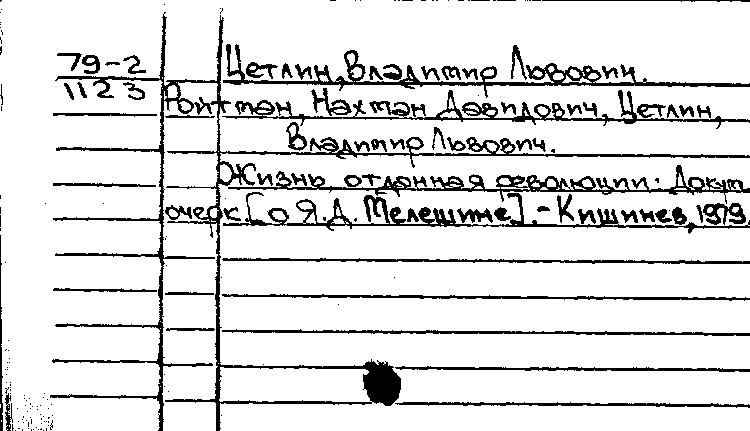 79-2 Цетлин, Владимир Львович.
1123 Ройтман, Нахман Давидович, Цетлин,
Владимир Львович.
Жизнь, отданная революции: Докум
очерк [о Я.Д. Мелешине]. - Кишинев, 1979.